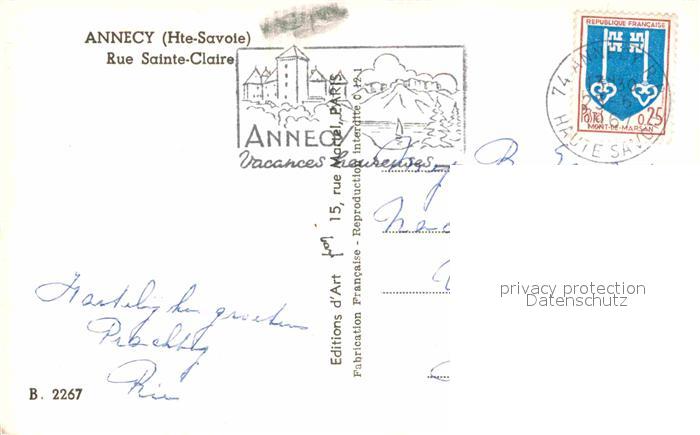 ANNECY (Hte-Savoie)
Rue Sainte-Claire
ANNECY
Vacances heureuses
REPUBLIQUE FRANÇAISE
POSTES 0,25
MONT-DE-MARSAN
74 ANNECY
HAUTE SAVOIE
Editions d'Art 15, rue Martel, PARIS
Fabrication Française - Reproduction interdite 0.12.1
Hartelijken groeten
Prachtig
Rie
B. 2267
privacy protection
Datenschutz